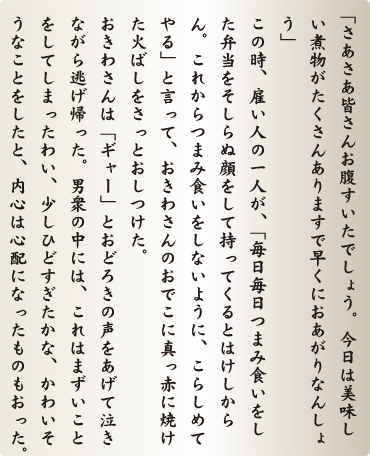 「さあさあ皆さんお腹すいたでしょう。今日は美味し
い煮物がたくさんありますで早くにおあがりなんしょ
う」
この時、雇い人の一人が、「毎日毎日つまみ食いをし
た弁当をそしらぬ顔をして持ってくるとはけしから
ん。これからつまみ食いをしないように、こらしめて
やる」と言って、おきわさんのおでこに真っ赤に焼け
た火ばしをさっとおしつけた。
おきわさんは「ギャー」とおどろきの声をあげて泣き
ながら逃げ帰った。男衆の中には、これはまずいこと
をしてしまったわい、少しひどすぎたかな、かわいそ
うなことをしたと、内心は心配になったものもおった。